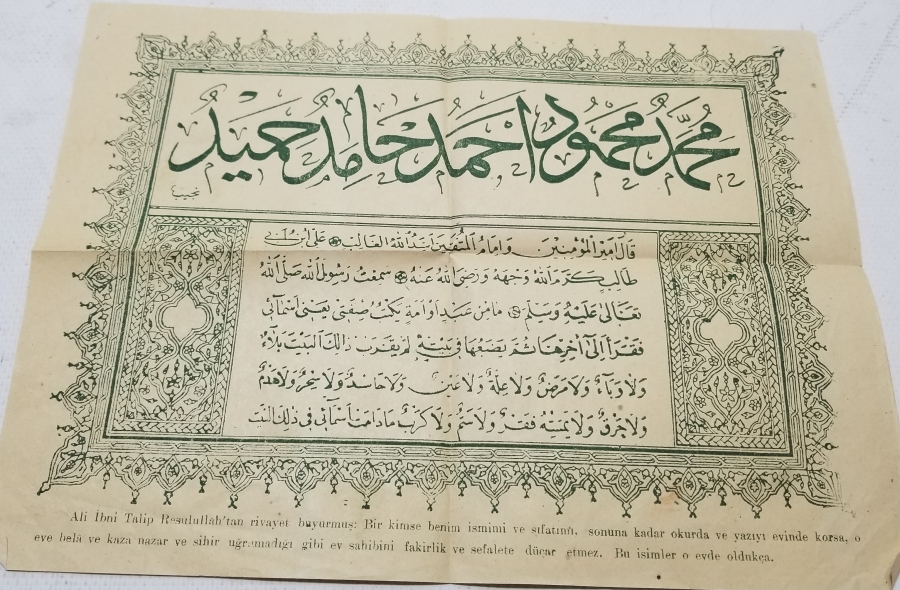 محمد محمود احمد حامد حميد
قَالَ اَمِيرُ الْمُؤْمِنِينَ وَاِمَامُ الْمُتَّقِينَ اَسَدُ اللّٰهِ الْغَالِبِ عَلَى ابْنُ اَبِى
طَالِبٍ كَرَّمَ اللّٰهُ وَجْهَهُ وَرَضِىَ اللّٰهُ عَنْهُ سَمِعْتُ رَسُولَ اللّٰهِ صَلَّى اللّٰهُ
تَعَالٰى عَلَيْهِ وَسَلَّمَ مَا مِنْ عَبْدٍ اَوْ اَمَةٍ يَكْتُبُ صِفَتِى يَعْنِى اَسْمَائِى
فَقَرَأَ اِلَى اٰخِرِهَا ثُمَّ يَضَعُهَا فِى بَيْتِهِ لَمْ يَقْرَبْ ذَالِكَ الْبَيْتَ بَلَاءٌ
وَلَا وَبَاءٌ وَلَا مَرَضٌ وَلَا عِلَّةٌ وَلَا عَيْنٌ وَلَا حَاسِدٌ وَلَا سِحْرٌ وَلَا هَدْمٌ
وَلَا حَرْقٌ وَلَا يَمَسُّهُ فَقْرٌ وَلَا سَمٌّ وَلَا كَرْبٌ مَادَامَتْ اَسْمَائِى فِى ذٰلِكَ الْبَيْتِ
Ali İbni Talip Resulullah'tan rivayet buyurmuş: Bir kimse benim ismimi ve sıfatımı, sonuna kadar okurda ve yazıyı evinde korsa, o
eve belâ ve kaza nazar ve sihir uğramadığı gibi ev sahibini fakirlik ve sefalete düçar etmez. Bu isimler o evde oldukça.